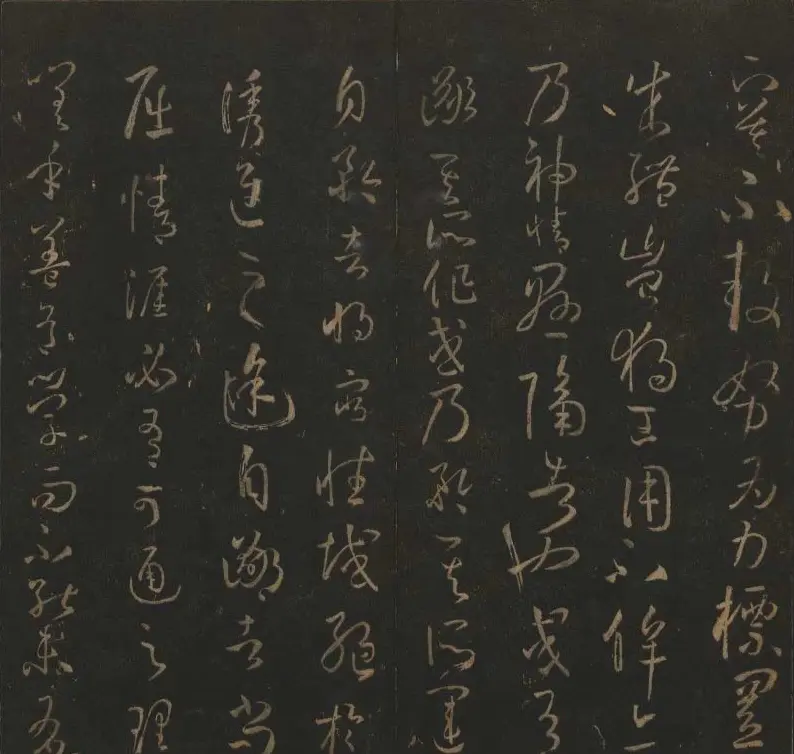 下莫不鼓努為力標置
成體豈獨工用不侔亦
乃神情懸隔者也或有
鄙其所作或乃矜其所運
自矜者將窮性域絕於
誘進之途自鄙者尚
屈情涯必有可通之理
嗟乎蓋有學而不能未有